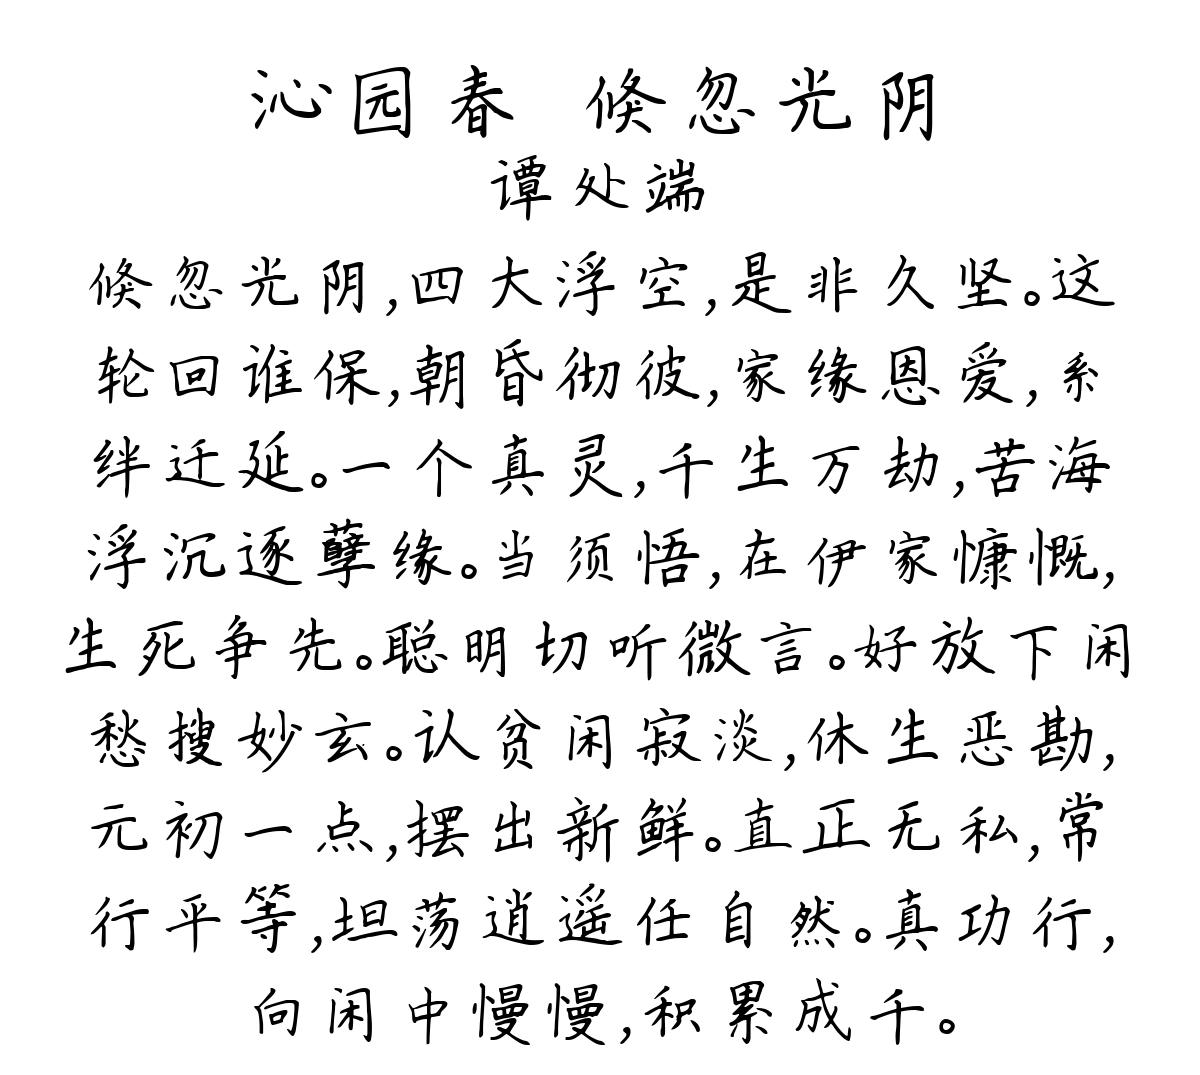 沁园春 倏忽光阴
谭处端
倏忽光阴,四大浮空,是非久坚。这
轮回谁保,朝昏彻彼,家缘恩爱,系
绊迁延。一个真灵,千生万劫,苦海
浮沉逐孽缘。当须悟,在伊家慷慨,
生死争先。聪明切听微言。好放下闲
愁搜妙玄。认贫闲寂淡,休生恶勘,
元初一点,摆出新鲜。直正无私,常
行平等,坦荡逍遥任自然。真功行,
向闲中慢慢,积累成千。